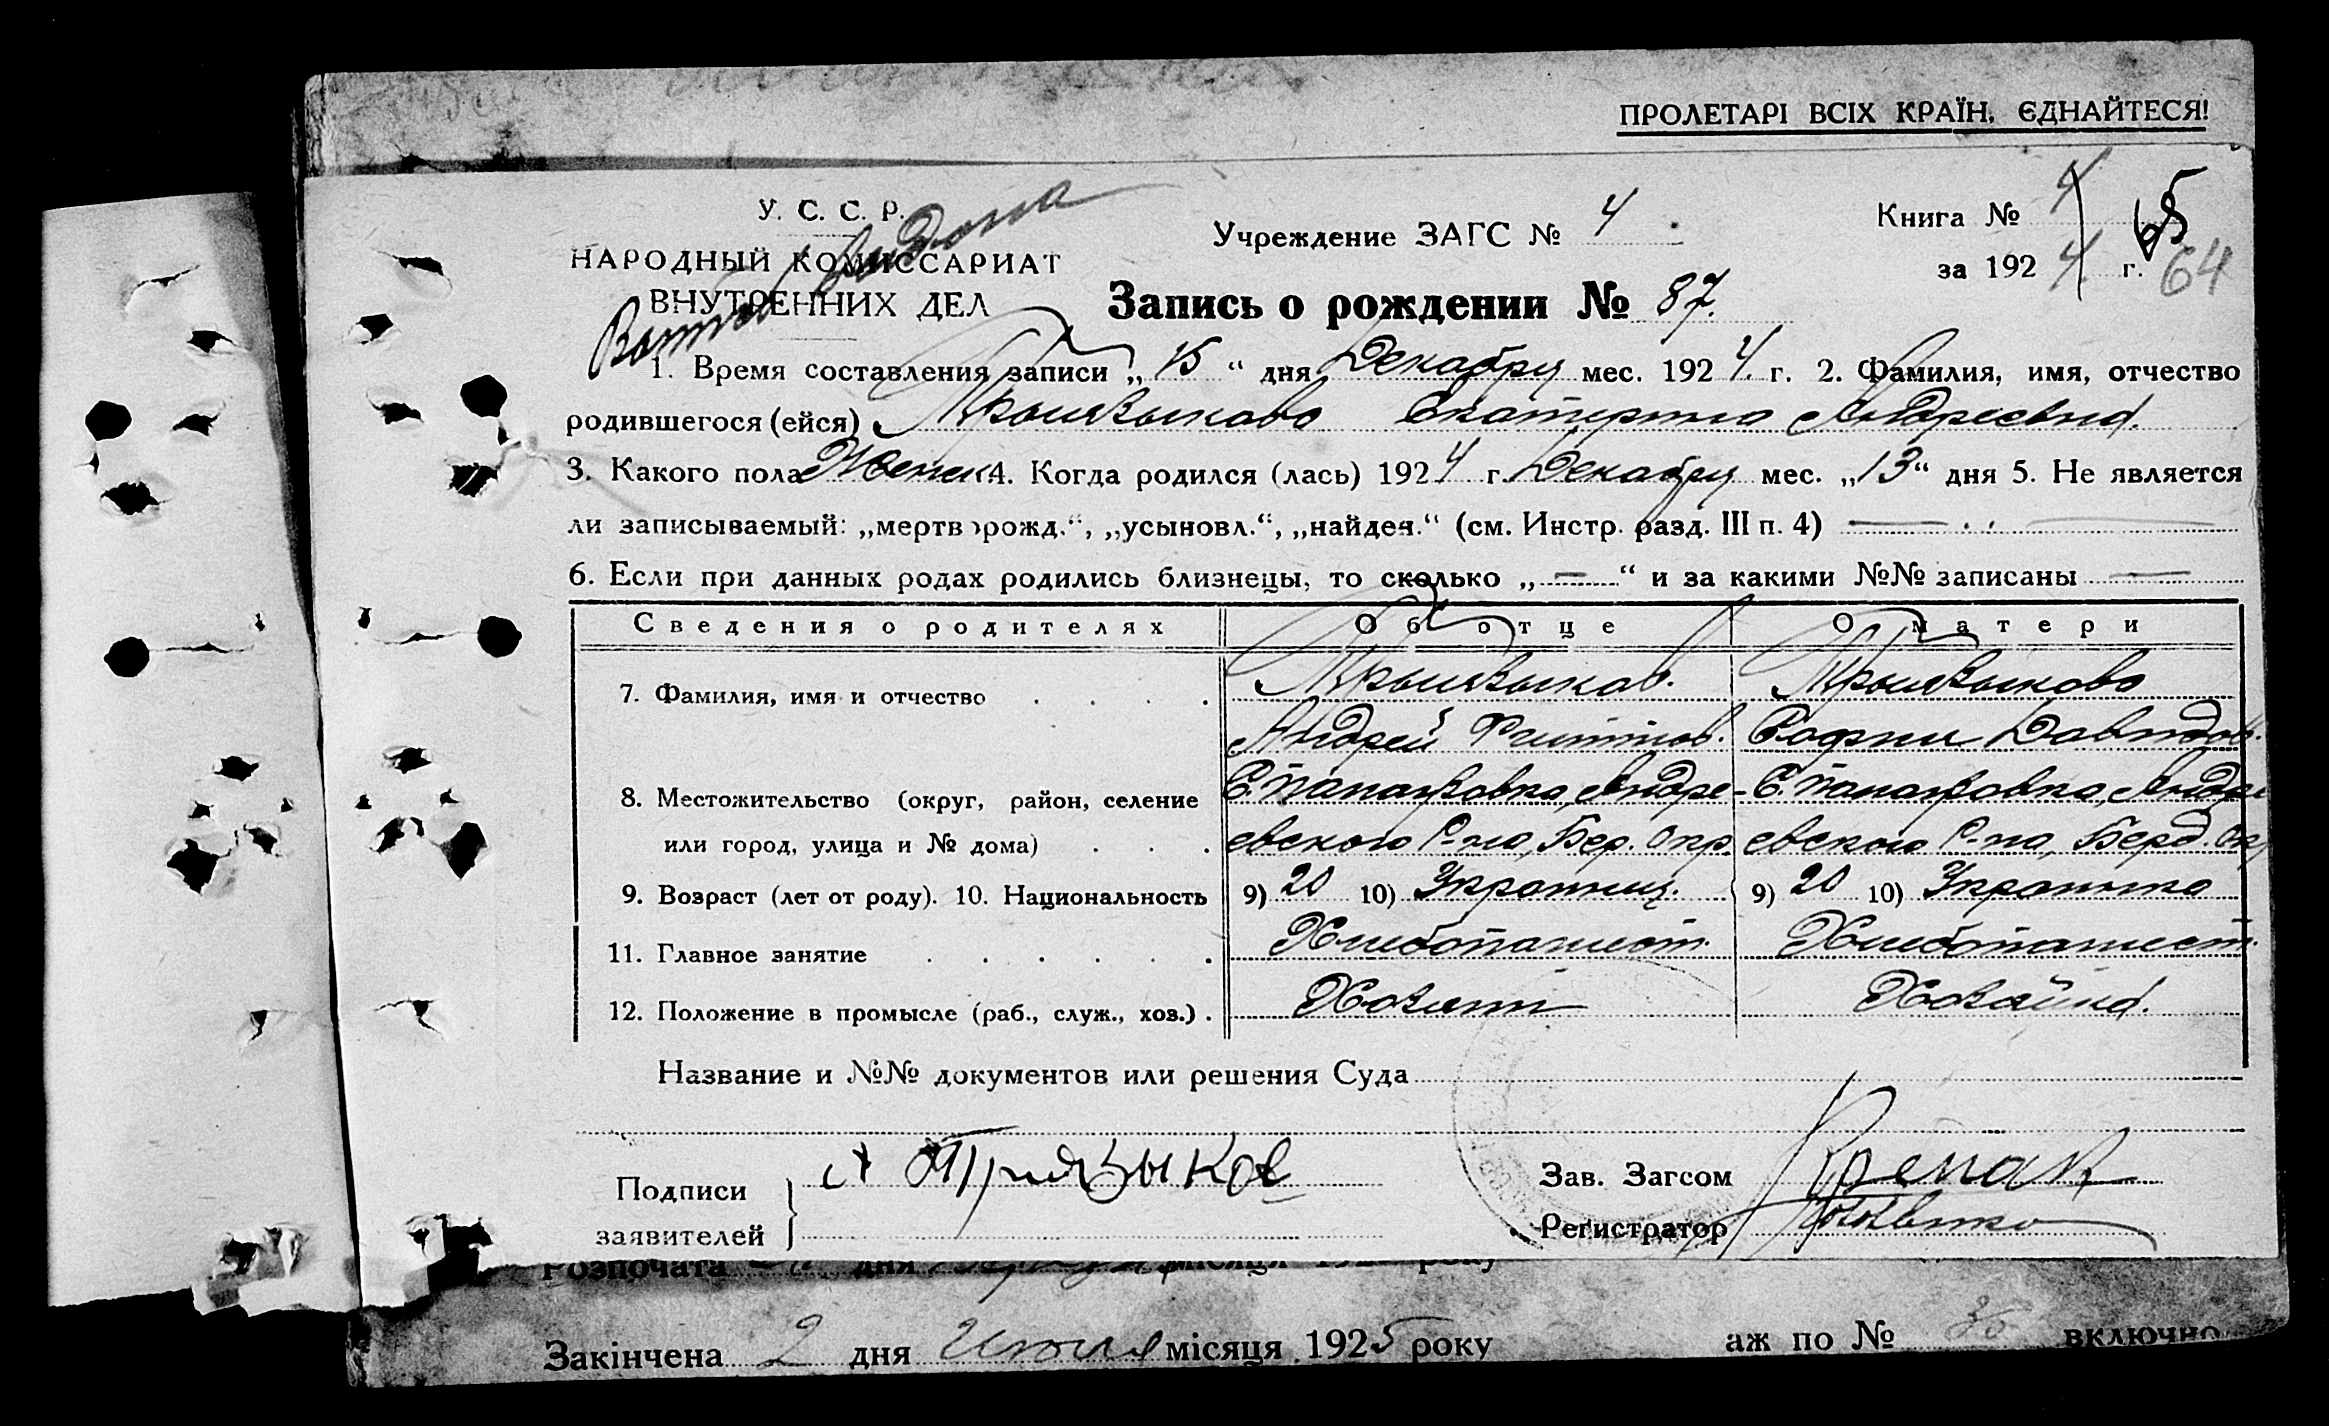 ПРОЛЕТАРІ ВСІХ КРАЇН, ЄДНАЙТЕСЯ!
У. С. С. Р.
НАРОДНЫЙ КОМИССАРИАТ
ВНУТРЕННИХ ДЕЛ
Учреждение ЗАГС № 4
Книга № 4 65
за 192 4 г. 64
Запись о рождении № 87.
1. Время составления записи „ 15 “ дня Декабря мес. 192 4. г. 2. Фамилия, имя, отчество
родившегося (ейся) Екатерина Андреевна.
3. Какого пола Женск 4. Когда родился (лась) 192 4 г. Декабря мес. „ 13 “ дня 5. Не является
ли записываемый: „мертворожд.“, „усыновл.“, „найден.“ (см. Инстр. разд. III п. 4) —
6. Если при данных родах родились близнецы, то сколько „ — “ и за какими №№ записаны —
Сведения о родителях Об отце О матери
7. Фамилия, имя и отчество
Андрей Давидов.
8. Местожительство (округ, район, селение
или город, улица и № дома) евского Р-на, Бер. Окр. евского Р-на, Берд. Ок
9. Возраст (лет от роду). 10. Национальность 9) 20 10) 9) 20 10)
11. Главное занятие Хлебопашест. Хлебопашест.
12. Положение в промысле (раб., служ., хоз.) . Хозяин Хозяйка.
Название и №№ документов или решения Суда
Подписи заявителей А Приязыков
Зав. Загсом
Регистратор
Розпочата дня місяця року
Закінчена 2 дня місяця 1925 року аж по № включно